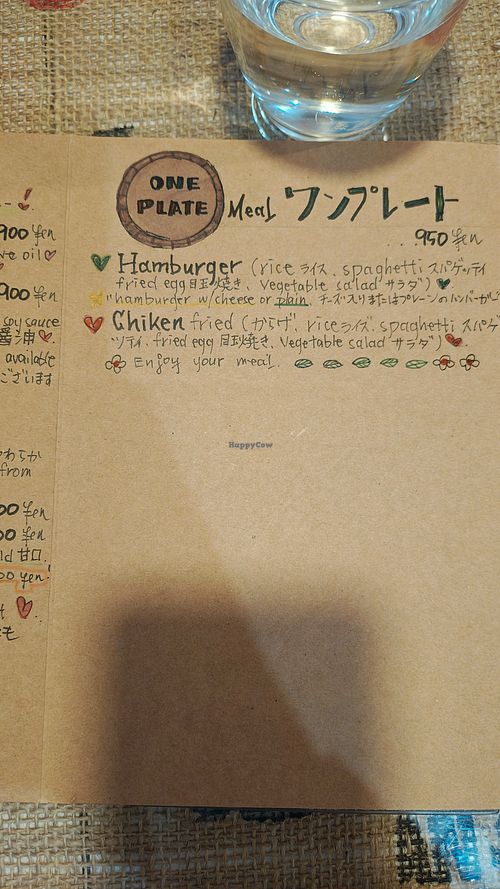 ONE
PLATE
Meal ワンプレート
...950 yen
Hamburger (rice ライス, spaghetti スパゲッティ
fried egg 目玉焼き, Vegetable salad サラダ)
"hamburger w/cheese or plain, チーズ入りまたはプレーンのハンバーガー
Chiken fried (からげ, rice ライズ, spaghetti スパゲ
ッティ, fried egg 目玉焼き, Vegetable salad サラダ)
Enjoy your meal.
900 yen
ve oil
900 yen
soy sauce
醤油
available
ございます
わらか
from
00 yen
00 yen
ld 甘口
00 yen!
も
HappyCow